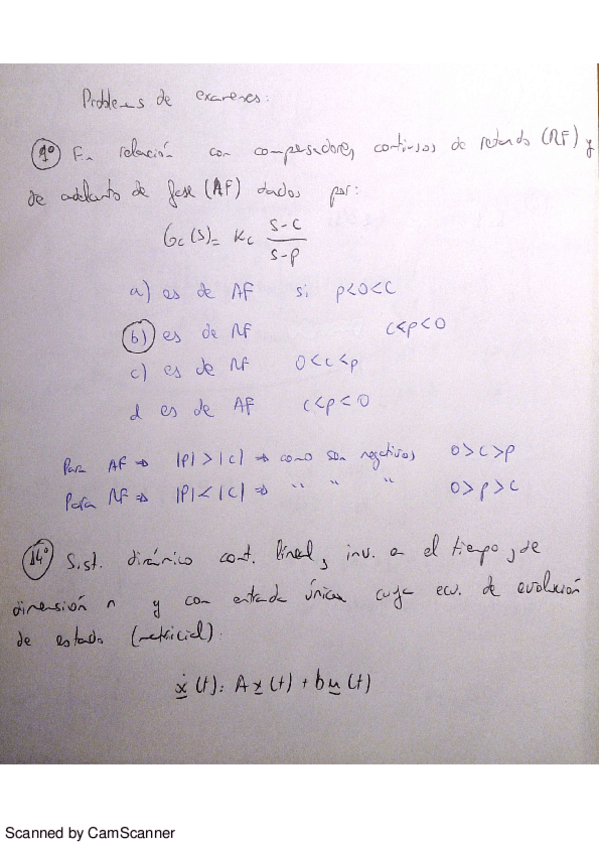 Problemas de exámenes:
1º En relación con compensadores continuos de retardo (RF) y
de adelanto de fase (AF) dados por:
Gc(s)= Kc (s-c)/(s-p)
a) es de AF si p<0<c
b) es de RF c<p<0
c) es de RF 0<c<p
d es de AF c<p<0
Para AF => |p|>|c| => como son negativos 0>c>p
Para RF => |p|<|c| => " " " 0>p>c
14º Sist. dinámico cont. lineal, inv. en el tiempo, de
dimensión n y con entrada única cuya ecu. de evolución
de estado (matricial):
ẋ(t): Ax(t)+bu(t)
Scanned by CamScanner